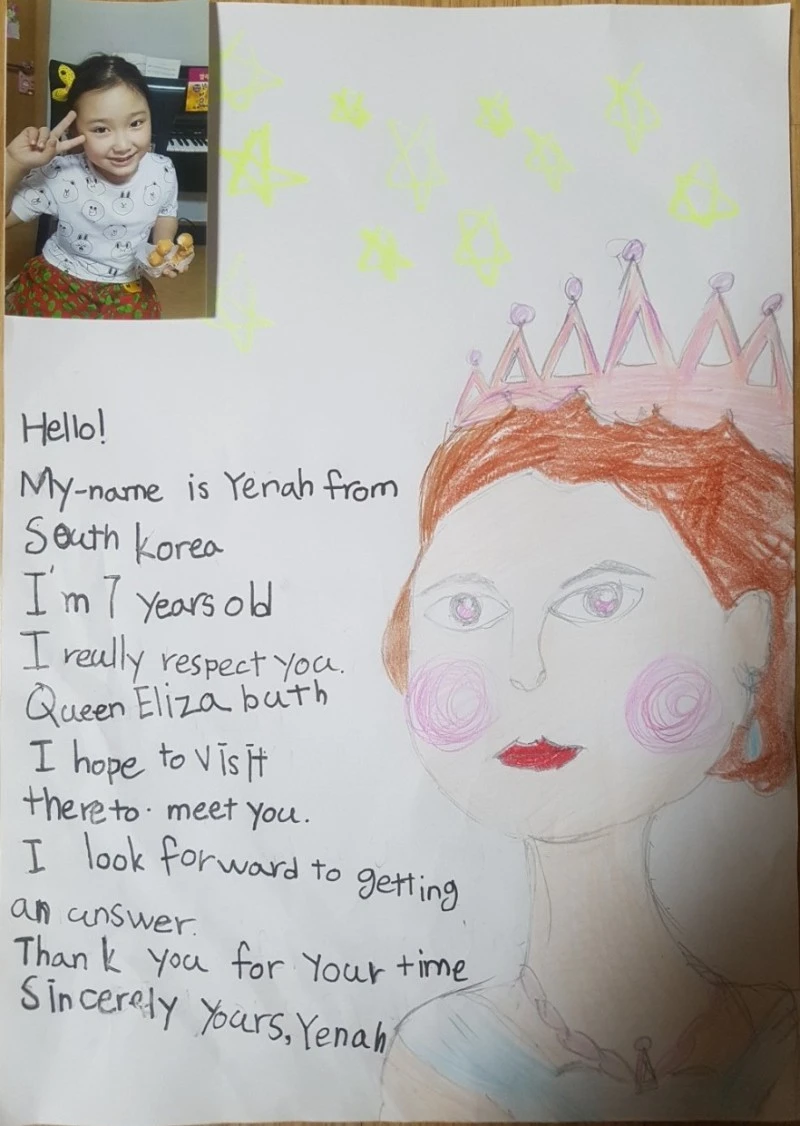 Hello!
My-name is Yenah from
South korea
I'm 7 years old
I really respect you.
Queen Eliza buth
I hope to visit
there to. meet you.
I look forward to getting
an answer.
Thank you for your time
Sincerely yours, Yenah